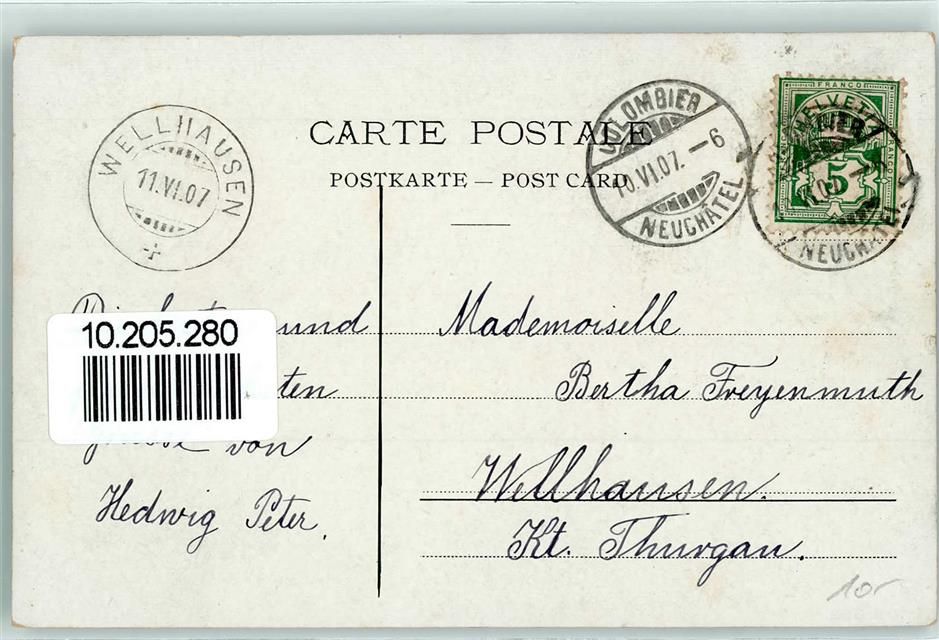 CARTE POSTALE
POSTKARTE — POST CARD
WELLHAUSEN
11.VI.07
COLOMBIER
10.VI.07.—6
NEUCHATEL
FRANCO
HELVETIA
5
NEUCHATEL
10.205.280
und
Mademoiselle
Bertha Freyenmuth
von
Wellhausen.
Hedwig Peter.
Kt. Thurgau.
10.-